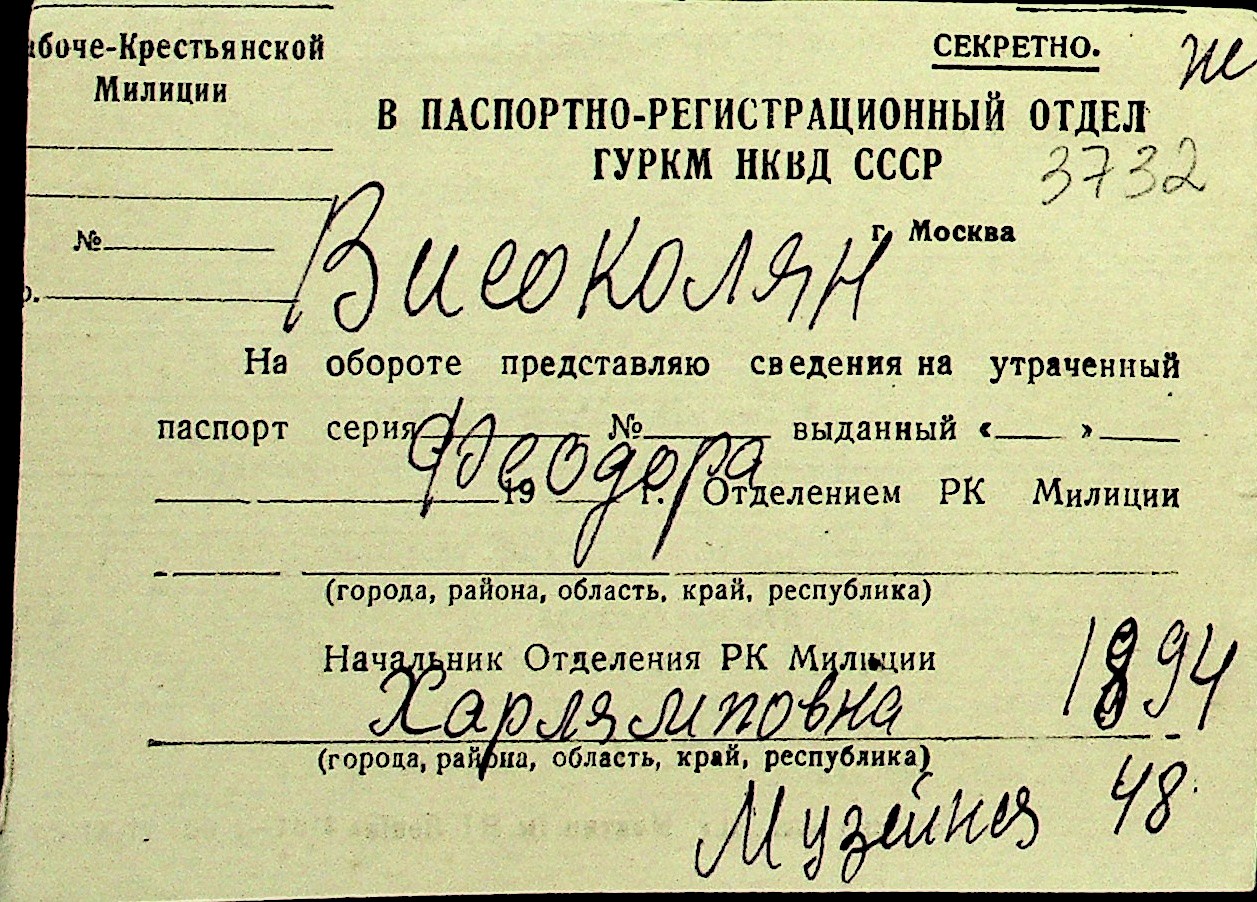 абоче-Крестьянской
Милиции
№
СЕКРЕТНО.
В ПАСПОРТНО-РЕГИСТРАЦИОННЫЙ ОТДЕЛ
ГУРКМ НКВД СССР
3732
г. Москва
Високолян
На обороте представляю сведения на утраченный
паспорт серия № выданный « »
Феодора
19 г. Отделением РК Милиции
(города, района, область, край, республика)
Начальник Отделения РК Милиции
1894
Харлямповна
(города, района, область, край, республика)
Музейня 48